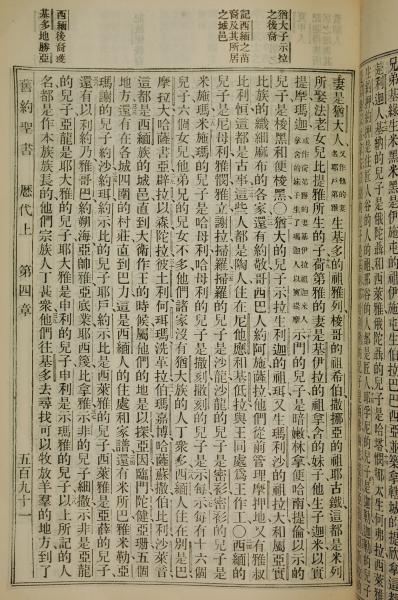 猶大子示拉
之後裔
記西緬之苗
裔及其所居
之城邑
西緬後裔遷
基多地勝亞
妻是猶大人生基多的祖雅列梭哥的祖希伯撒挪亞的祖耶古鐵這都是米列
所娶法老女兒比提雅所生的子荷第雅的妻是基伊拉的祖拿含的妹子他生子迦米以實
提摩瑪迦示門的兒子是暗嫩林拿便哈南提倫以示的
兒子是梭黑和便梭黑〇猶大的兒子示拉生利迦的祖珥又生瑪利沙的祖拉大和屬亞實
比族的織細麻布的各家還有約敬哥西巴人約阿施薩拉他們從前管理摩押地又有雅叔
比利恒這都是古事這些人都是陶人住在尼他應和基低拉與王同處爲王作工〇西緬的
兒子是尼母利雅憫雅立謝拉掃羅掃羅的兒子是沙龍沙龍的兒子是密衫密衫的兒子是
米施瑪米施瑪的兒子是哈母利哈母利的兒子是撒刻撒刻的兒子是示每示每有十六個
兒子六個女兒他弟兄的兒女不多他們諸家沒有猶大族的人丁衆多西緬人住在別是巴
摩拉大哈薩書亞辟拉以森陀拉彼土利何珥瑪洗革拉伯瑪嘉博哈薩蘇撒伯比利沙萊音
這都是西緬族的城邑直到大衛作王的時候屬他們的地是以探亞因臨門陀健亞珊五個
地方還有在各城四圍的村莊直到巴力這是西緬人的住處和家譜還有米所巴雅米勒亞
瑪謝的兒子約沙約珥約示比的兒子耶戶約示比是西萊雅的兒子西萊雅是亞薛的兒子
還有以利約乃雅哥巴約朔海亞帥雅亞底業耶西篾比拿雅示非的兒子細撒示非是亞龍
的兒子亞龍是耶大雅的兒子耶大雅是申利的兒子申利是示瑪雅的兒子以上所記的人
名都是作本族族長的他們宗族人丁甚衆他們往基多去尋找可以牧放羊羣的地方到了
舊約聖書 歷代上 第四章 五百九十一